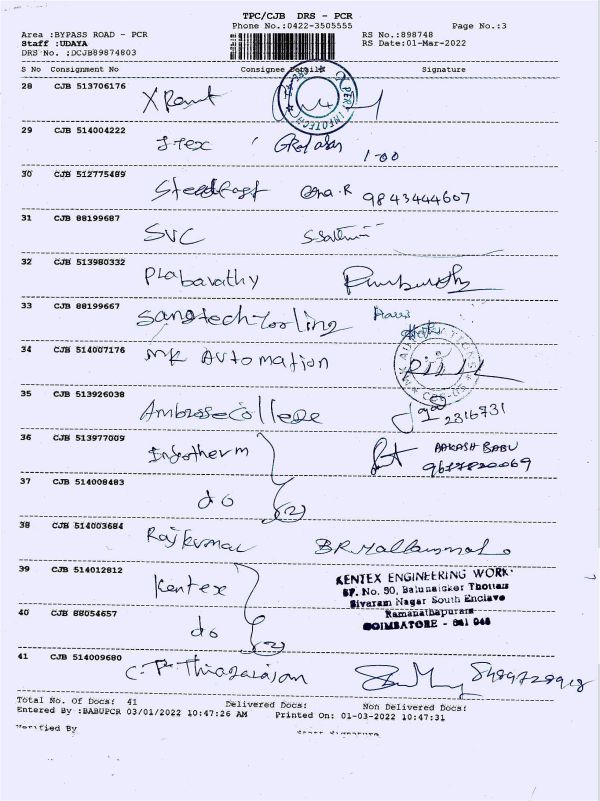 TPC/CJB DRS - PCR
Phone No.:0422-3505555 Page No.:3
Area :BYPASS ROAD - PCR RS No.:898748
Staff :UDAYA RS Date:01-Mar-2022
DRS No. :DCJB89874803
S No Consignment No Consignee Details Signature
28 CJB 513706176
29 CJB 514004222
100
30 CJB 512775489 Steedfast 9843444607
31 CJB 88199687 SVC
32 CJB 513980332 Prabavathy
33 CJB 88199667 Sangtech-Tooling
34 CJB 514007176 MK AUTOMATION
35 CJB 513926038 Ambrose College
2316731
36 CJB 513977009 Infotherm AAKASH BABU
37 CJB 514008483 do (2)
38 CJB 514003684 Rajkumar
39 CJB 514012812 Kentex
KENTEX ENGINEERING WORK
SF. No. 90, Balunaicker Thottam
Sivaram Nagar South Enclave
Ramanathapuram
COIMBATORE - 641 045
40 CJB 88054657 do (2)
41 CJB 514009680 C.P. Thiagarajan
Total No. Of Docs: 41 Delivered Docs: Non Delivered Docs:
Entered By :BABUPCR 03/01/2022 10:47:26 AM Printed On: 01-03-2022 10:47:31
Verified By Staff Signature